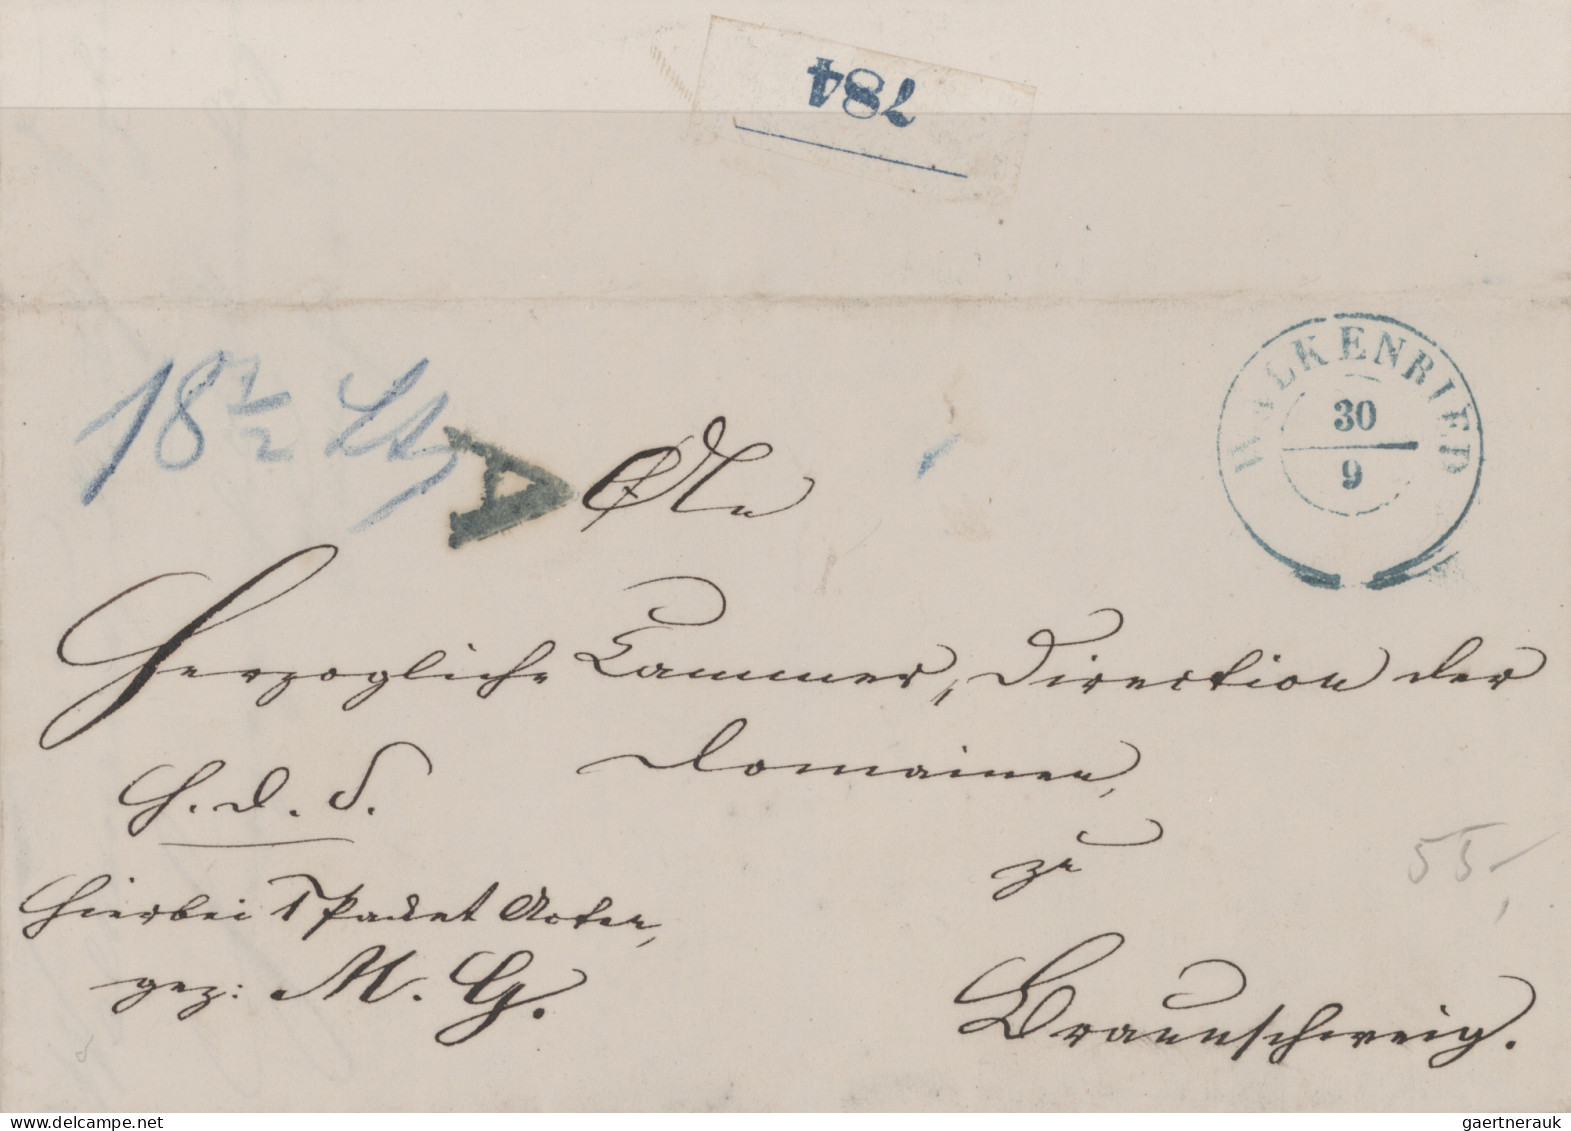 784
18 1/2 Lth
A
WALKENRIED
30
9
An
Herzogliche Cammer, Direction der
Domainen,
H. D. S.
zu
55,-
Hierbei 1 Packet Acten,
gez: M. G.
Braunschweig.
gaertnerauk